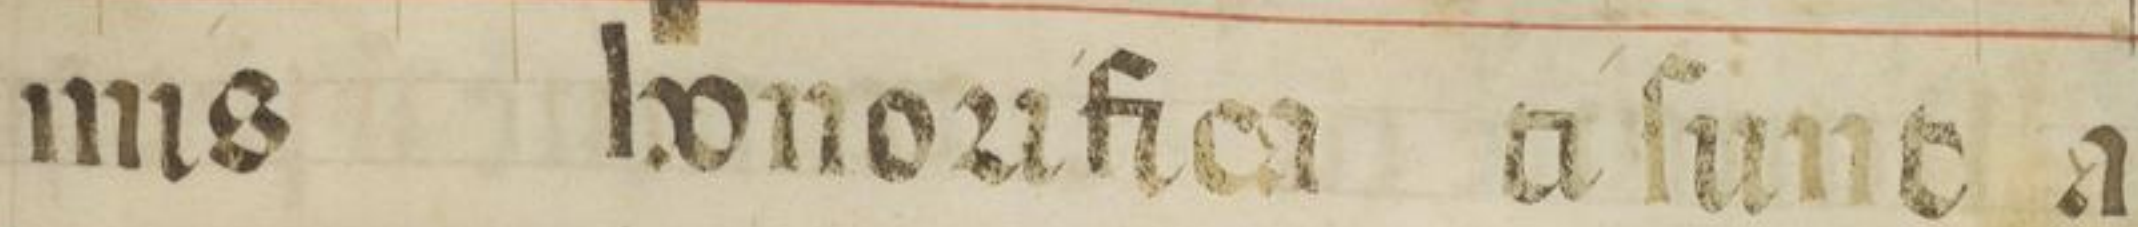 mis honorifica ti sunt a